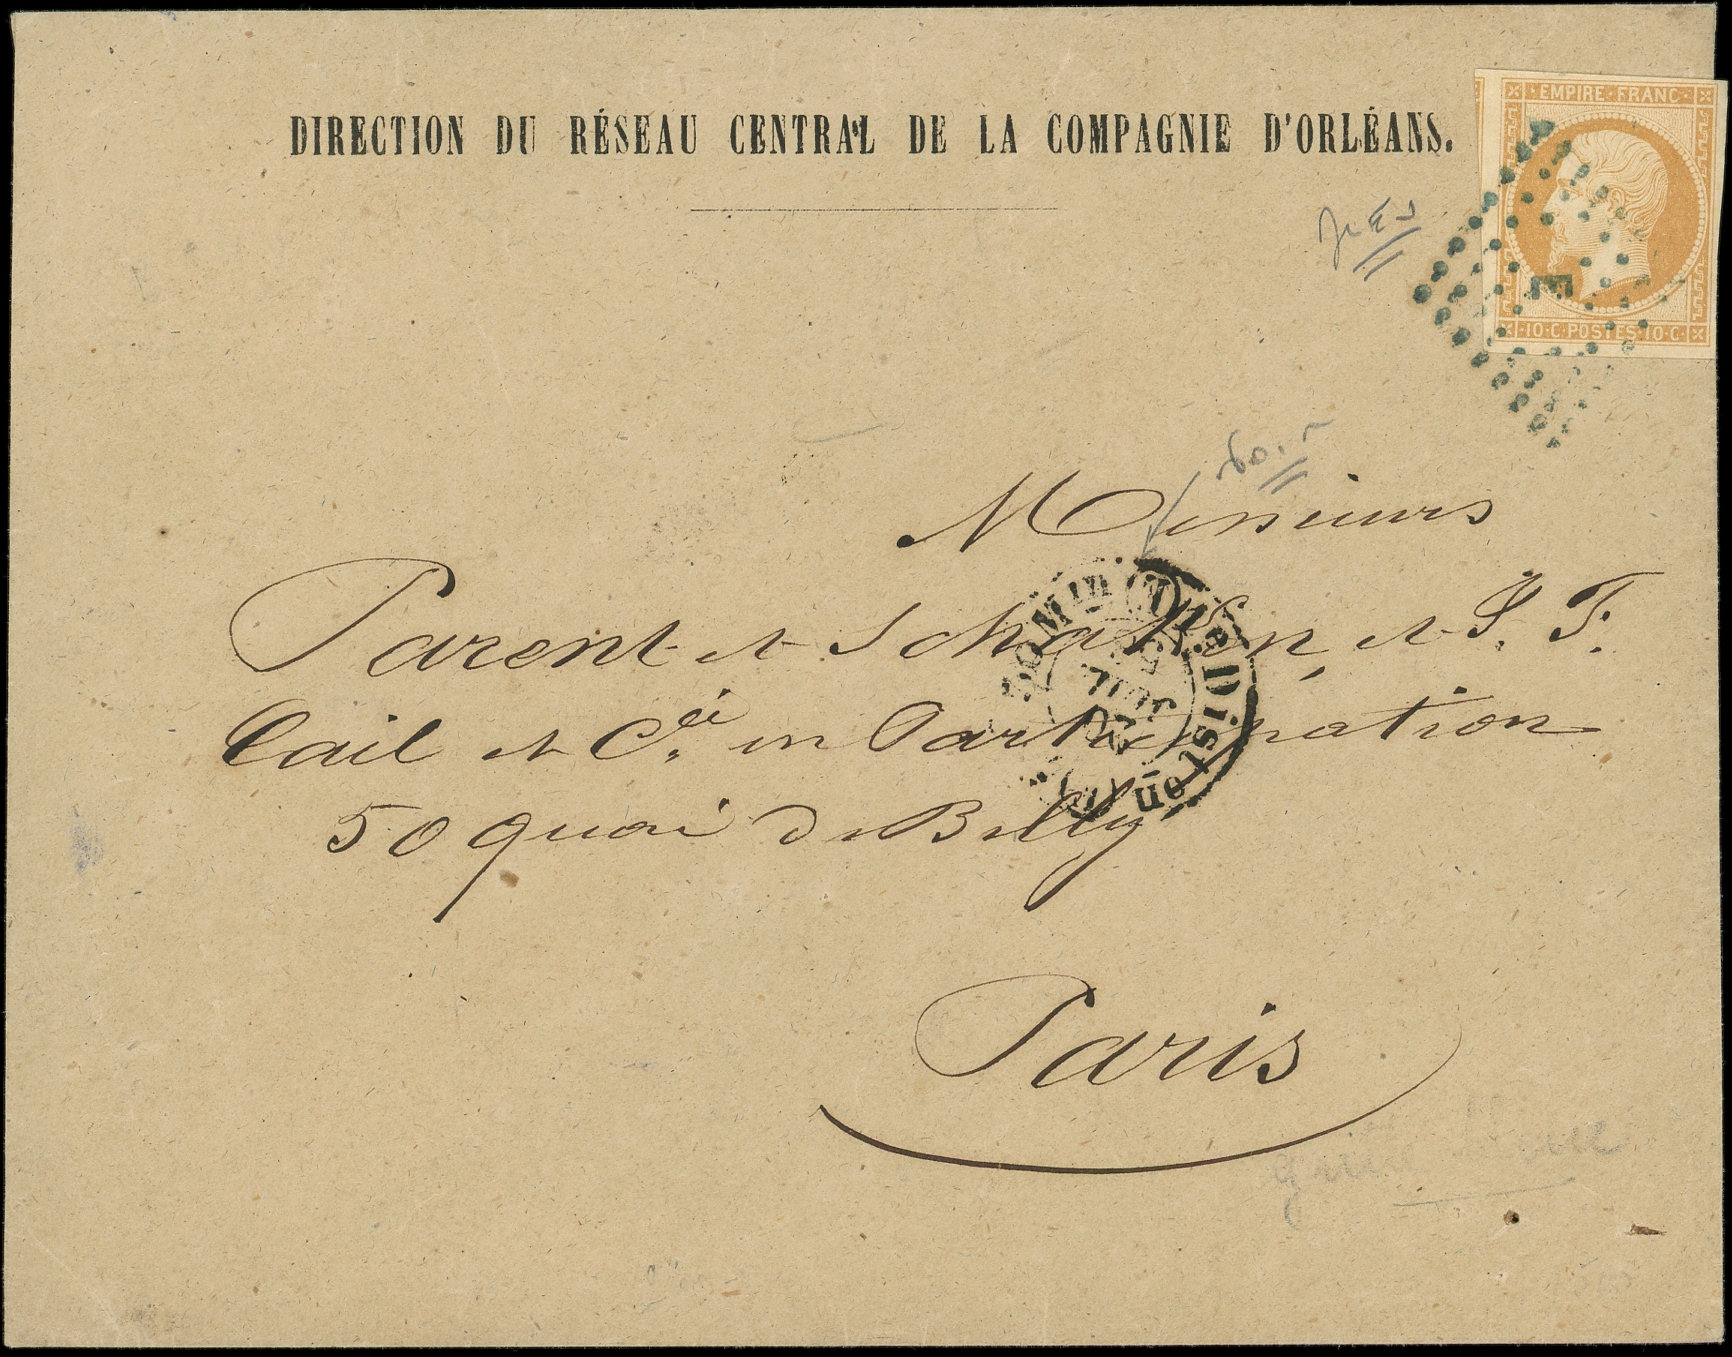 DIRECTION DU RÉSEAU CENTRAL DE LA COMPAGNIE D'ORLÉANS.
EMPIRE FRANC
E
10 C POSTES 10 C
Messieurs
Parent et Schaken, et J. F.
Cail et Cie en Participation
50 quai de Billy
Paris
Distion
JUIL